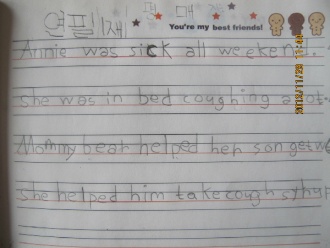 연필 재
You're my best friends!
Annie was sick all weekend.
She was in bed coughing a lot.
Mommy bear helped her son get
She helped him take cough syrup